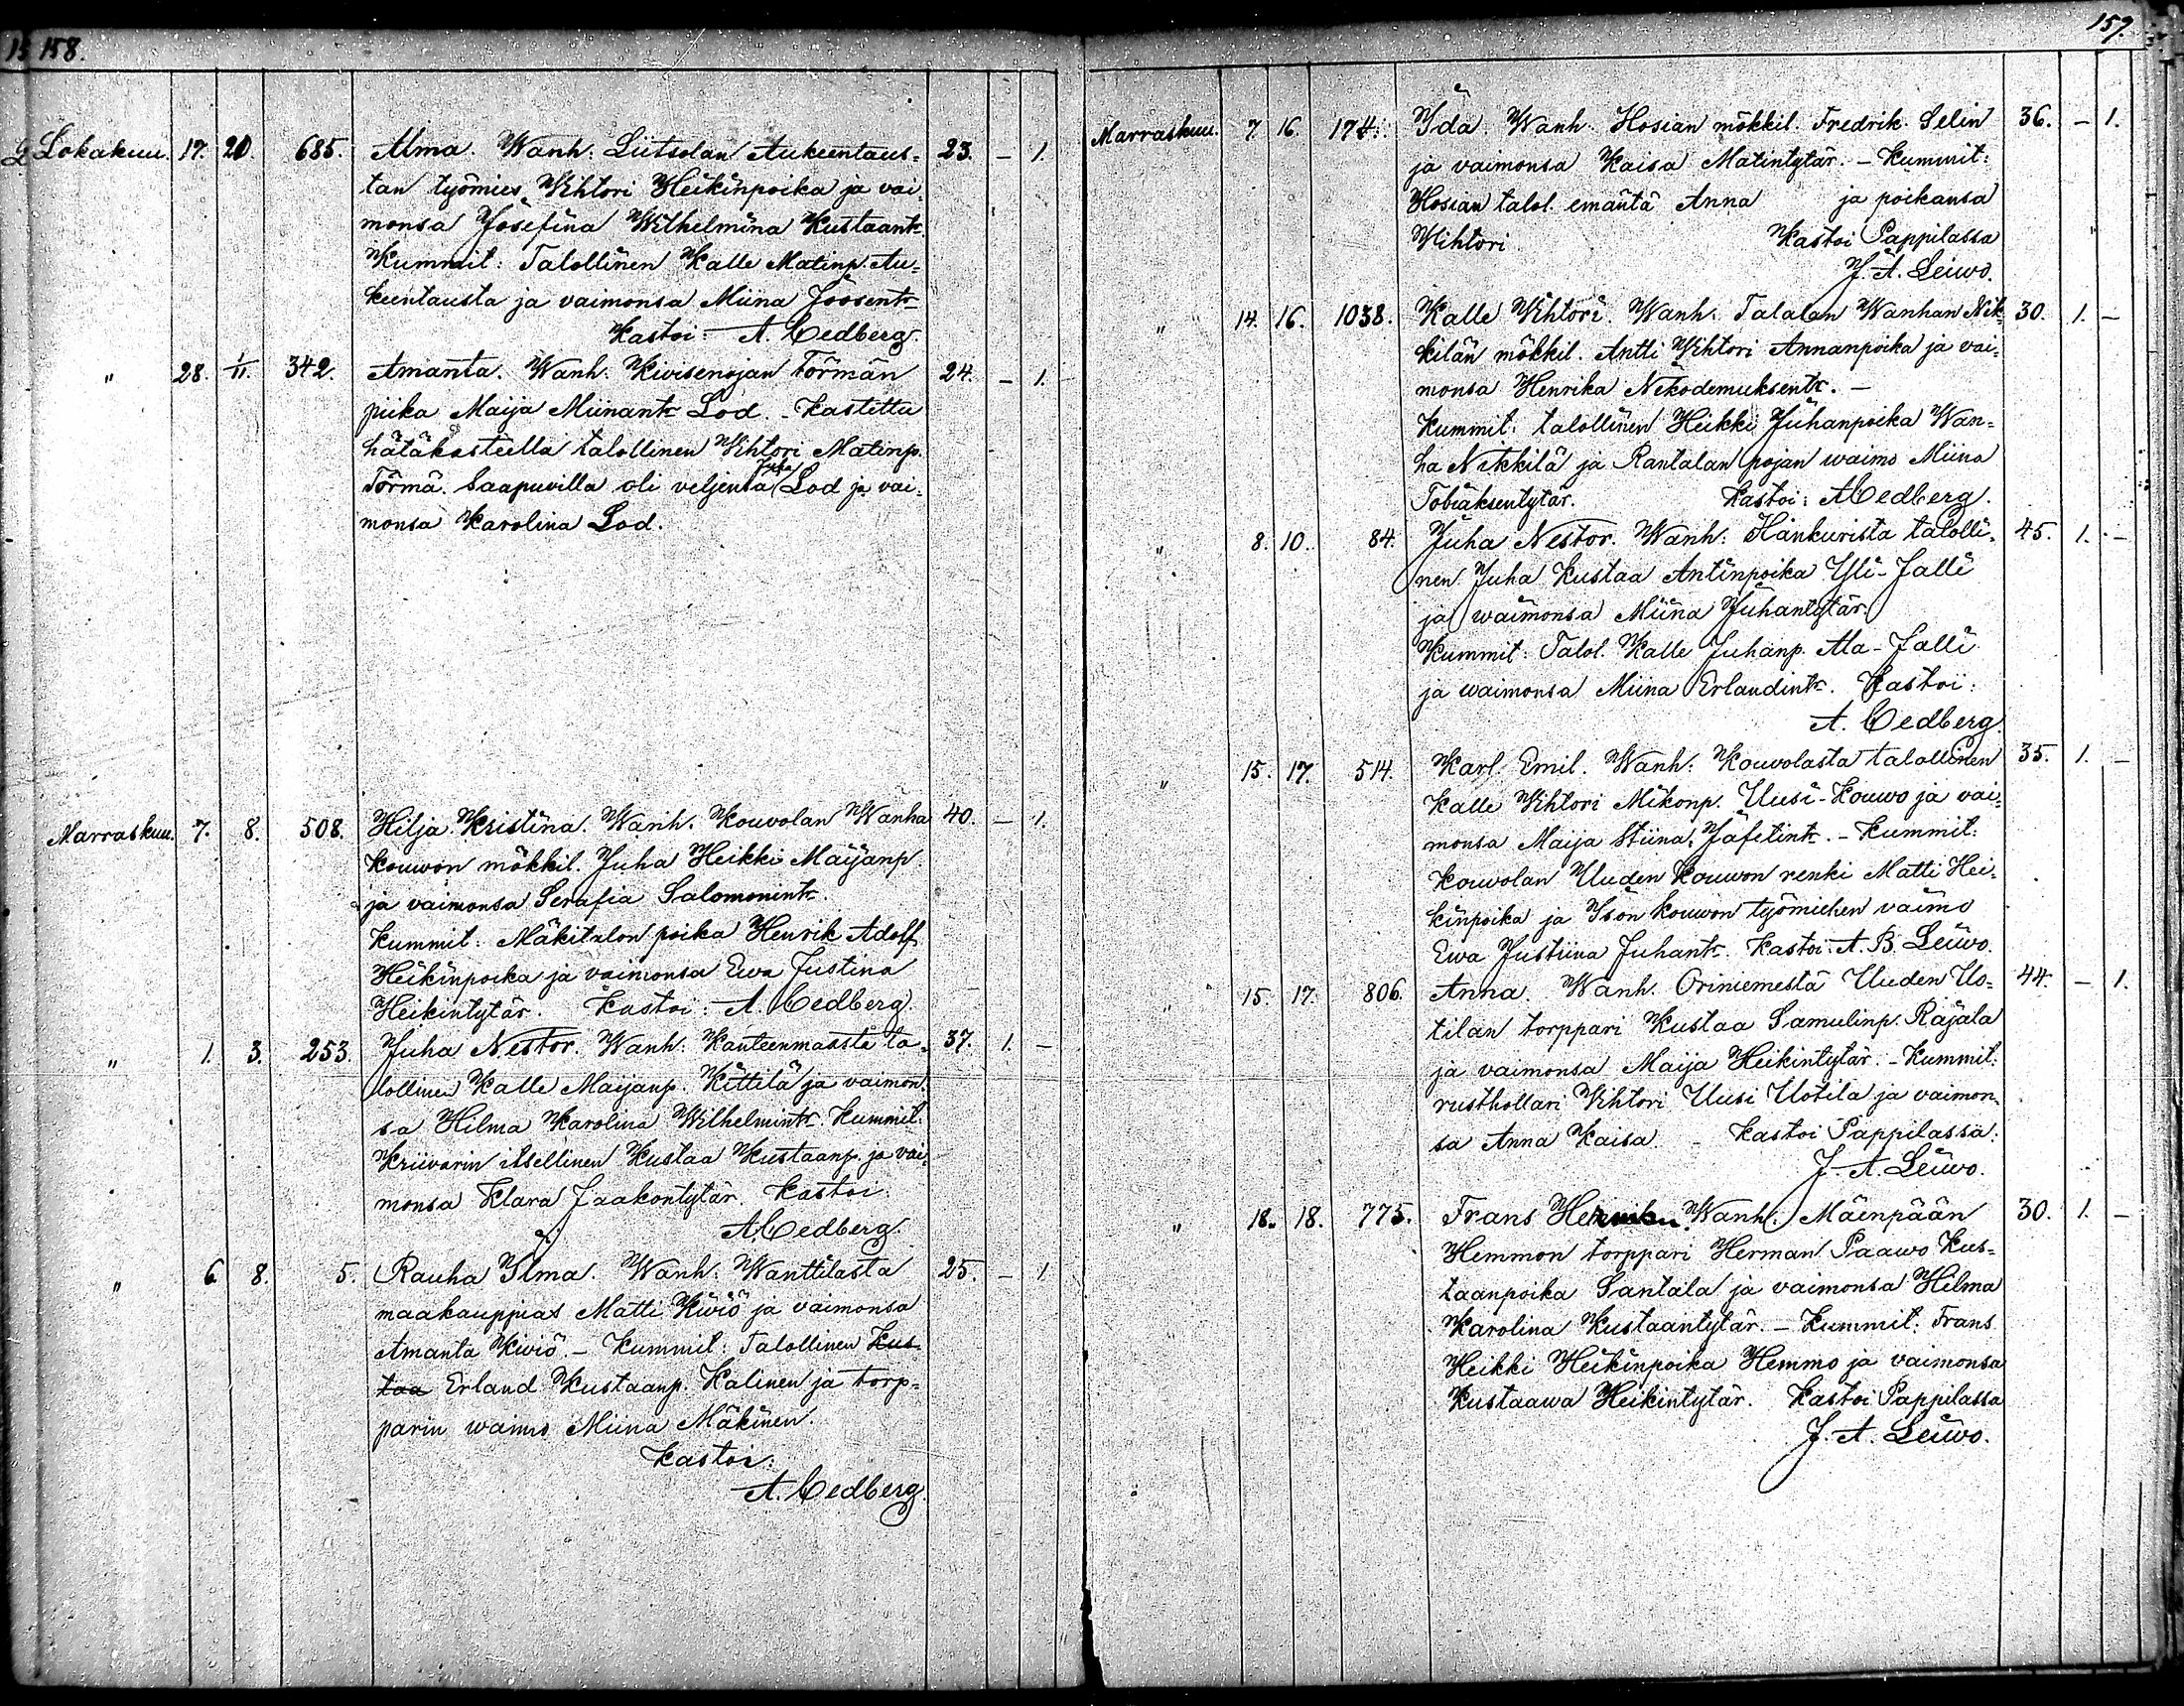 158.
Lokakuu. 17. 20. 685. Alma. Wanh: Liitsolan Aukeentaus= 23. – 1.
tan työmies Wihtori Heikinpoika ja vai=
monsa Josefina Wilhelmina Kustaantr.
Kummit: Talollinen Kalle Matinp. Au=
keentausta ja vaimonsa Miina Joosentr
Kastoi: A. Cedberg.
" 28. 1/11. 342. Amanta. Wanh: Kivisenojan Törmän 24. – 1.
piika Maija Miinantr Lod. - Kastettu
hätäkasteella talollinen Wihtori Matinp.
Törmä. Saapuvilla oli veljensä Juha Lod ja vai=
monsa Karolina Lod.
Marraskuu. 7. 8. 508. Hilja Kristina. Wanh. Kouvolan Wanha 40. – 1.
Kouwon mökkil. Juha Heikki Maijanp.
ja vaimonsa Serafia Salomonintr.
Kummit: Mäkitalon poika Henrik Adolf
Heikinpoika ja vaimonsa Ewa Justina
Heikintytär. Kastoi: A. Cedberg.
" 1. 3. 253. Juha Nestor. Wanh: Kanteenmaasta ta= 37. 1. –
lollinen Kalle Maijanp. Kittilä ja vaimon=
sa Hilma Karolina Wilhelmintr. Kummit:
Kriivarin itsellinen Kustaa Kustaanp. ja vai=
monsa Klara Jaakontytär. Kastoi:
A. Cedberg.
" 6. 8. 5. Rauha Ilma. Wanh: Wanttilasta 25. – 1
maakauppias Matti Kiviö ja vaimonsa
Amanta Kiviö. – Kummit: Talollinen Kus=
taa Erland Kustaanp. Kalinen ja torp=
parin waimo Miina Mäkinen.
Kastoi:
A. Cedberg.
159.
Marraskuu. 7. 16. 174. Ida. Wanh: Hosian mökkil. Fredrik Selin 36. – 1.
ja vaimonsa Kaisa Matintytär. – Kummit:
Hosian talol. emäntä Anna ja poikansa
Wihtori. Kastoi Pappilassa
J. A. Leiwo.
" 14. 16. 1038. Kalle Wihtori. Wanh: Talalan Wanhan Nik= 30. 1. –
kilän mökkil. Antti Wihtori Annanpoika ja vai=
monsa Henrika Nikodemuksentr. –
Kummit: talollinen Heikki Juhanpoika Wan=
ha Nikkilä ja Rantalan pojan waimo Miina
Tobiaksentytär. Kastoi: A Cedberg.
" 8. 10. 84. Juha Nestor. Wanh: Hankurista talolli= 45. 1. –
nen Juha Kustaa Antinpoika Yli-Jalli
ja waimonsa Miina Juhantytär.
Kummit: Talol. Kalle Juhanp. Ala-Jalli
ja waimonsa Miina Erlandintr. Kastoi:
A. Cedberg.
" 15. 17. 514. Karl Emil. Wanh: Kouvolasta talollinen 35. 1. –
Kalle Wihtori Mikonp. Uusi-Kouwo ja vai=
monsa Maija Stiina Jafetintr. – Kummit:
Kouvolan Uuden Kouwon renki Matti Hei=
kinpoika ja Ison Kouwon työmiehen vaimo
Ewa Justiina Juhantr. Kastoi: A. B. Leiwo.
" 15. 17. 806. Anna. Wanh. Oriniemestä Uuden Uo= 44. – 1.
tilan torppari Kustaa Samulinp. Rajala
ja vaimonsa Maija Heikintytär. – Kummit:
rusthollari Vihtori Uusi Uotila ja vaimon=
sa Anna Kaisa – Kastoi Pappilassa:
J. A. Leiwo.
" 18. 18. 775. Frans Herman. Wanh: Mäenpään 30. 1. –
Hemmon torppari Herman Paawo Kus=
taanpoika Santala ja vaimonsa Hilma
Karolina Kustaantytär. – Kummit: Frans
Heikki Heikinpoika Hemmo ja vaimonsa
Kustaawa Heikintytär. Kastoi Pappilassa
J. A. Leiwo.